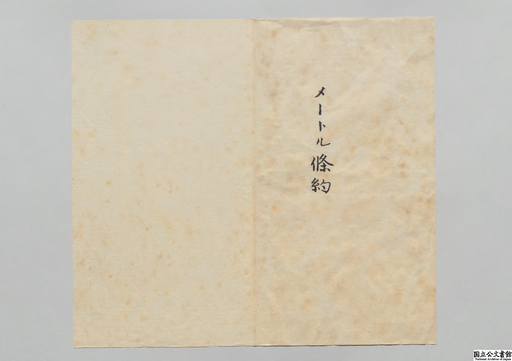 メートル條約
国立公文書館
National Archives of Japan